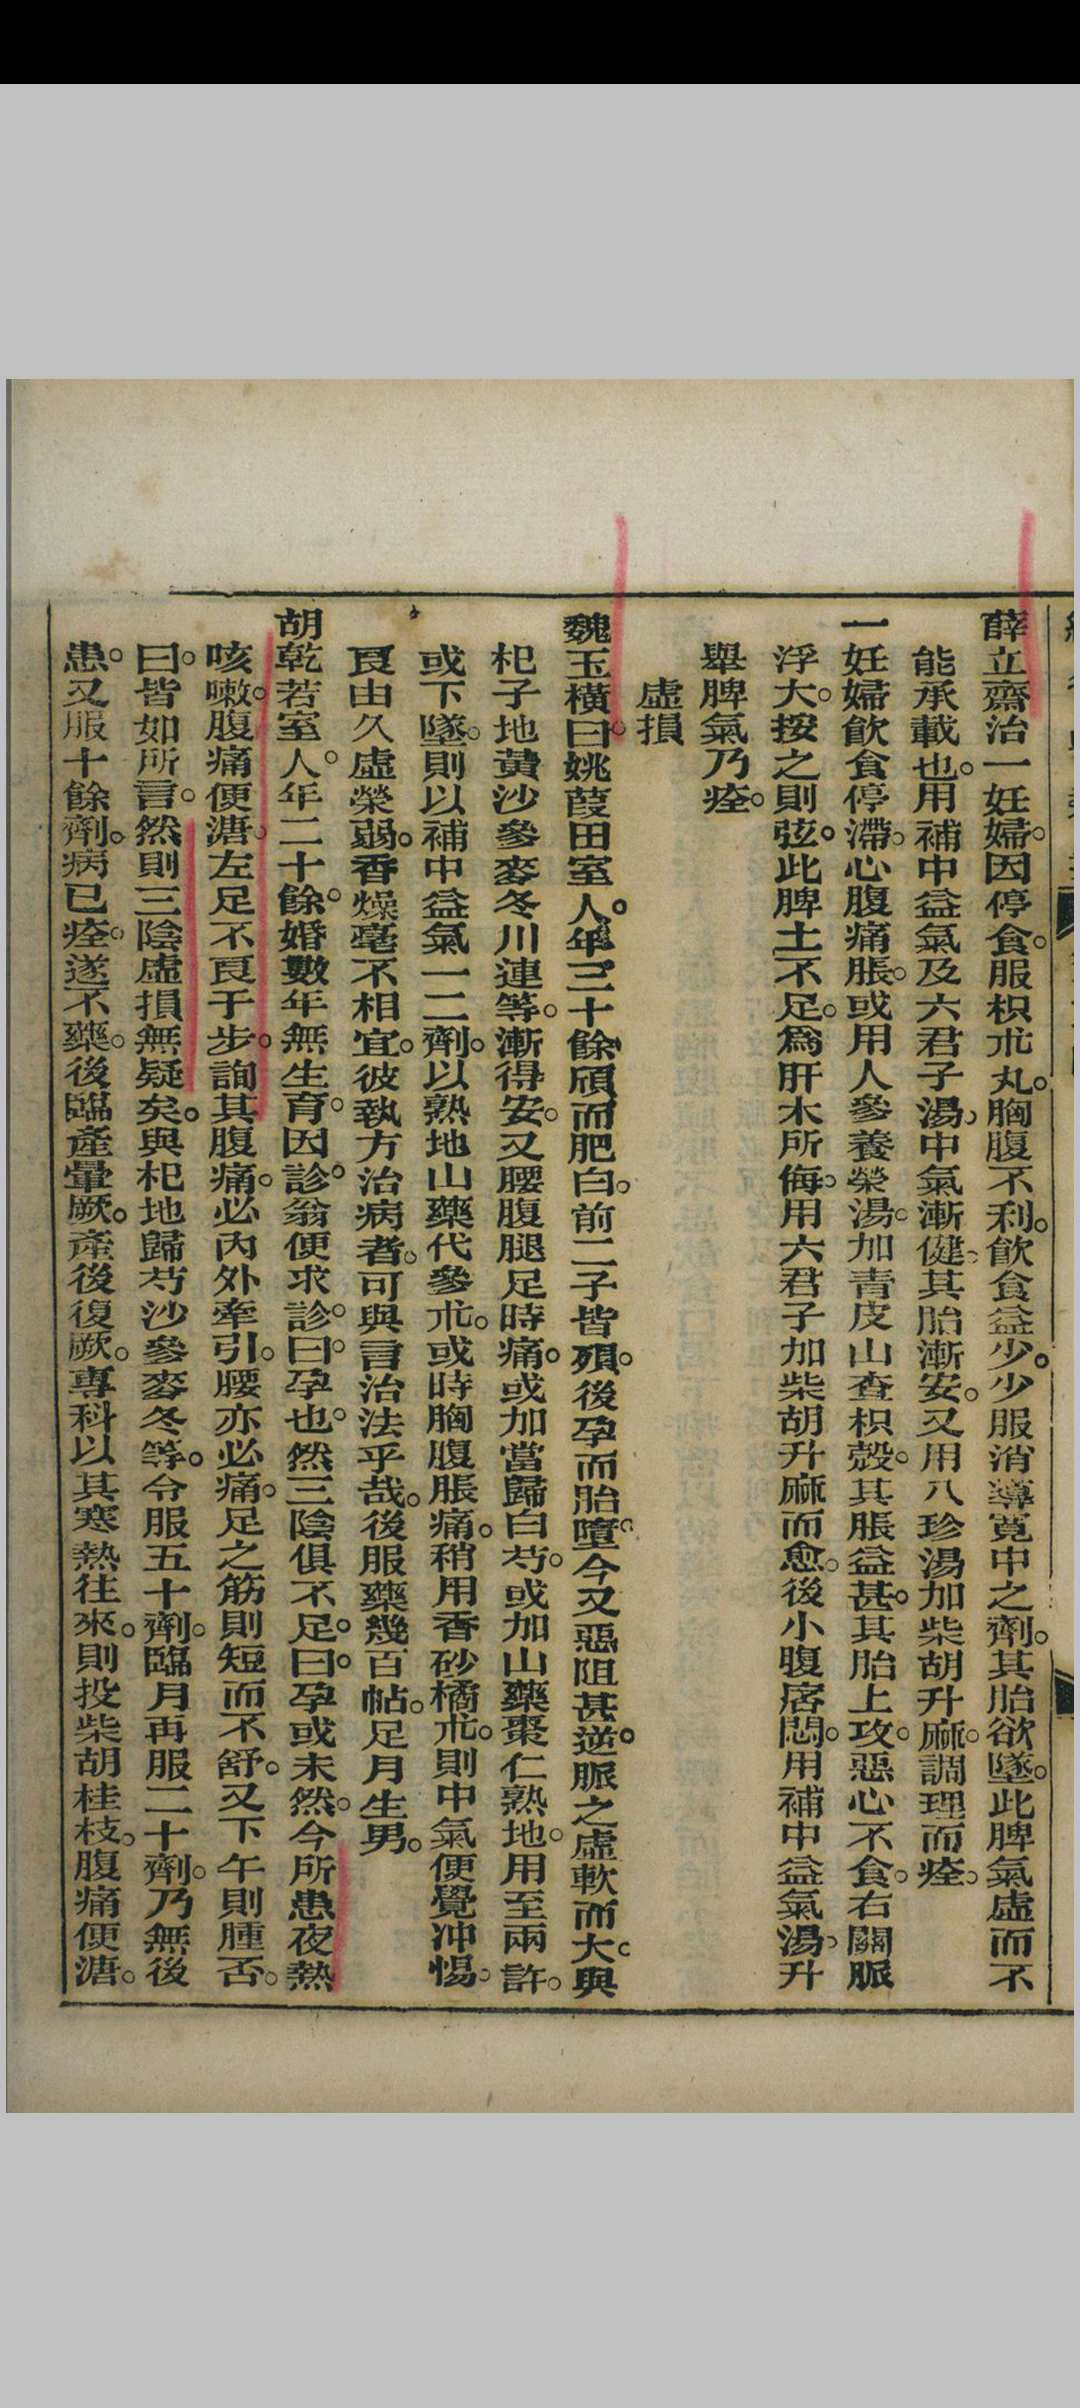 薛立齋治一妊婦。因停食。服枳朮丸。胸腹不利。飮食益少。少服消導寬中之劑。其胎欲墜。此脾氣虛而不
能承載也。用補中益氣及六君子湯。中氣漸健。其胎漸安。又用八珍湯加柴胡升麻。調理而痊。
一妊婦飮食停滯。心腹痛脹。或用人參養榮湯。加青皮山查枳殼。其脹益甚。其胎上攻。惡心不食。右關脈
浮大。按之則弦。此脾土不足。爲肝木所侮。用六君子加柴胡升麻而愈。後小腹痞悶。用補中益氣湯。升
舉脾氣乃痊。
虛損
魏玉橫曰。姚葭田室人。年三十餘。頎而肥白。前二子皆殞。後孕而胎墮。今又惡阻甚逆。脈之虛軟而大。與
杞子地黃沙參麥冬川連等。漸得安。又腰腹腿足時痛。或加當歸白芍。或加山藥棗仁熟地。用至兩許。
或下墜。則以補中益氣一二劑。以熟地山藥代參朮。或時胸腹脹痛。稍用香砂橘朮。則中氣便覺冲惕。
良由久虛榮弱。香燥毫不相宜。彼執方治病者。可與言治法乎哉。後服藥幾百帖。足月生男。
胡乾若室人。年二十餘。婚數年無生育。因診翁便求診。曰。孕也。然三陰俱不足。曰。孕或未然。今所患夜熱
咳嗽。腹痛便溏。左足不良于步。詢其腹痛。必內外牽引。腰亦必痛。足之筋則短而不舒。又下午則腫否。
曰。皆如所言。然則三陰虛損無疑矣。與杞地歸芍沙參麥冬等。令服五十劑。臨月再服二十劑。乃無後
患。又服十餘劑。病已痊。遂不藥。後臨產暈厥。產後復厥。專科以其寒熱往來。則投柴胡桂枝。腹痛便溏。